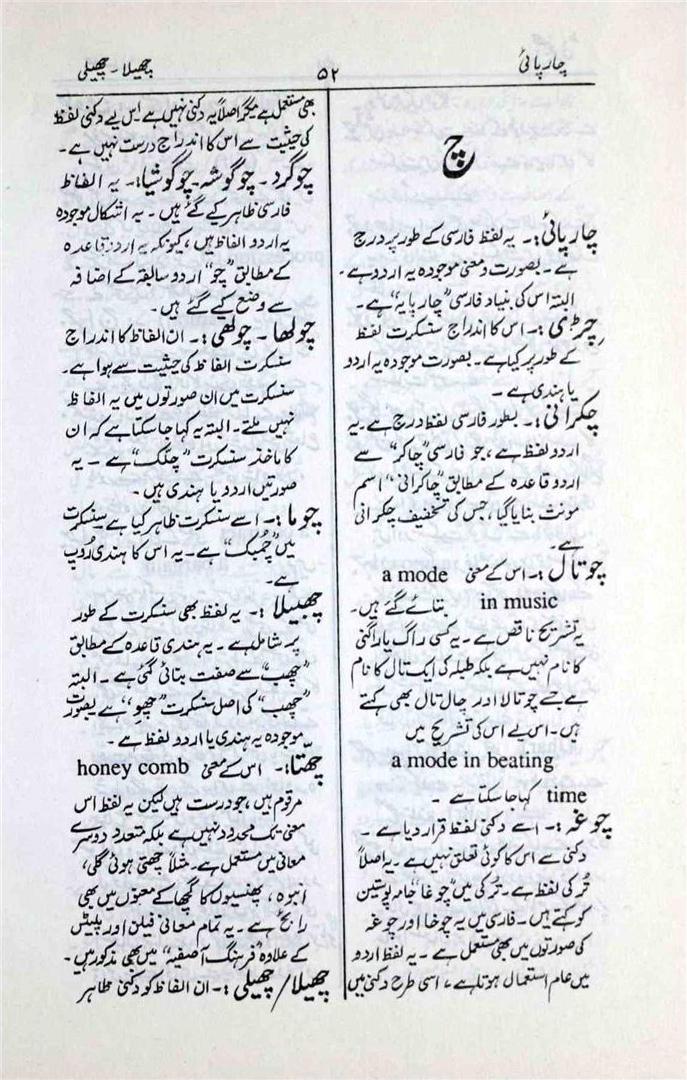 چارپائی
۵۲
چھیلا ۔ چھیلی
چ
چارپائی :۔ یہ لفظ فارسی کے طور پر درج
ہے ۔ بصورت و معنی موجودہ یہ اردو ہے ۔
البتہ اس کی بنیاد فارسی ”چارپایہ“ ہے ۔
چرڑی :۔ اس کا اندراج سنسکرت لفظ
کے طور پر کیا ہے ۔ بصورت موجودہ یہ اردو
یا ہندی ہے ۔
چکرانی :۔ بطور فارسی لفظ درج ہے ۔ یہ
اردو لفظ ہے ، جو فارسی ”چاکر“ سے
اردو قاعدہ کے مطابق ”چاکرانی“ اسم
مونث بنایا گیا ، جس کی تخفیف چکرانی
ہے ۔
چوتال :۔ اس کے معنی a mode
in music بتائے گئے ہیں ۔
یہ تشریح ناقص ہے ۔ یہ کسی راگ یا راگنی
کا نام نہیں ہے بلکہ طبلہ کی ایک تال کا نام
ہے جسے چوتالا اور چال تال بھی کہتے
ہیں ۔ اس لیے اس کی تشریح میں
a mode in beating
time کہا جا سکتا ہے ۔
چوغہ :۔ اسے دکنی لفظ قرار دیا ہے ۔
دکنی سے اس کا کوئی تعلق نہیں ہے ۔ یہ اصلاً
ترکی لفظ ہے ۔ ترکی میں ”چوغا“ جامہ پوستین
کو کہتے ہیں ۔ فارسی میں یہ چوخا اور چوغہ
کی صورتوں میں بھی مستعمل ہے ۔ یہ لفظ اردو
میں عام استعمال ہوتا ہے ، اسی طرح دکنی میں
بھی مستعمل ہے مگر اصلاً یہ دکنی نہیں ہے اس لیے دکنی لفظ
کی حیثیت سے اس کا اندراج درست نہیں ہے ۔
چوگرد ۔ چوگوشہ ۔ چوگوشیا :۔ یہ الفاظ
فارسی ظاہر کیے گئے ہیں ۔ یہ اشکال موجودہ
یہ اردو الفاظ ہیں ، کیونکہ یہ اردو قاعدہ
کے مطابق ”چو“ اردو سابقہ کے اضافہ
سے وضع کیے گئے ہیں ۔
چولھا ۔ چولھی :۔ ان الفاظ کا اندراج
سنسکرت الفاظ کی حیثیت سے ہوا ہے ۔
سنسکرت میں ان صورتوں میں یہ الفاظ
نہیں ملتے ۔ البتہ یہ کہا جا سکتا ہے کہ ان
کا ماخذ سنسکرت ہے ۔ یہ
صورتیں اردو یا ہندی ہیں ۔
چوما :۔ اسے سنسکرت ظاہر کیا ہے سنسکرت
میں ”چمبک“ ہے ۔ یہ اس کا ہندی روپ
ہے ۔
چھبیلا :۔ یہ لفظ بھی سنسکرت کے طور
پر شامل ہے ۔ یہ ہندی قاعدہ کے مطابق
”چھب“ سے صفت بنائی گئی ہے ۔ البتہ
”چھب“ کی اصل سنسکرت ہے بصورت
موجودہ یہ ہندی یا اردو لفظ ہے ۔
چھتا :۔ اس کے معنی honey comb
مرقوم ہیں ، جو درست ہیں لیکن یہ لفظ اس
معنی تک محدود نہیں ہے بلکہ متعدد دوسرے
معانی میں مستعمل ہے ۔ مثلاً چھتی ہوئی گلی ،
انبوہ ، پھنسیوں کا گچھا کے معنوں میں بھی
رائج ہے ۔ یہ تمام معانی فیلن اور پلیٹس
کے علاوہ ”فرہنگ آصفیہ“ میں بھی مذکور ہیں ۔
چھیلا / چھیلی :۔ ان الفاظ کو دکنی ظاہر